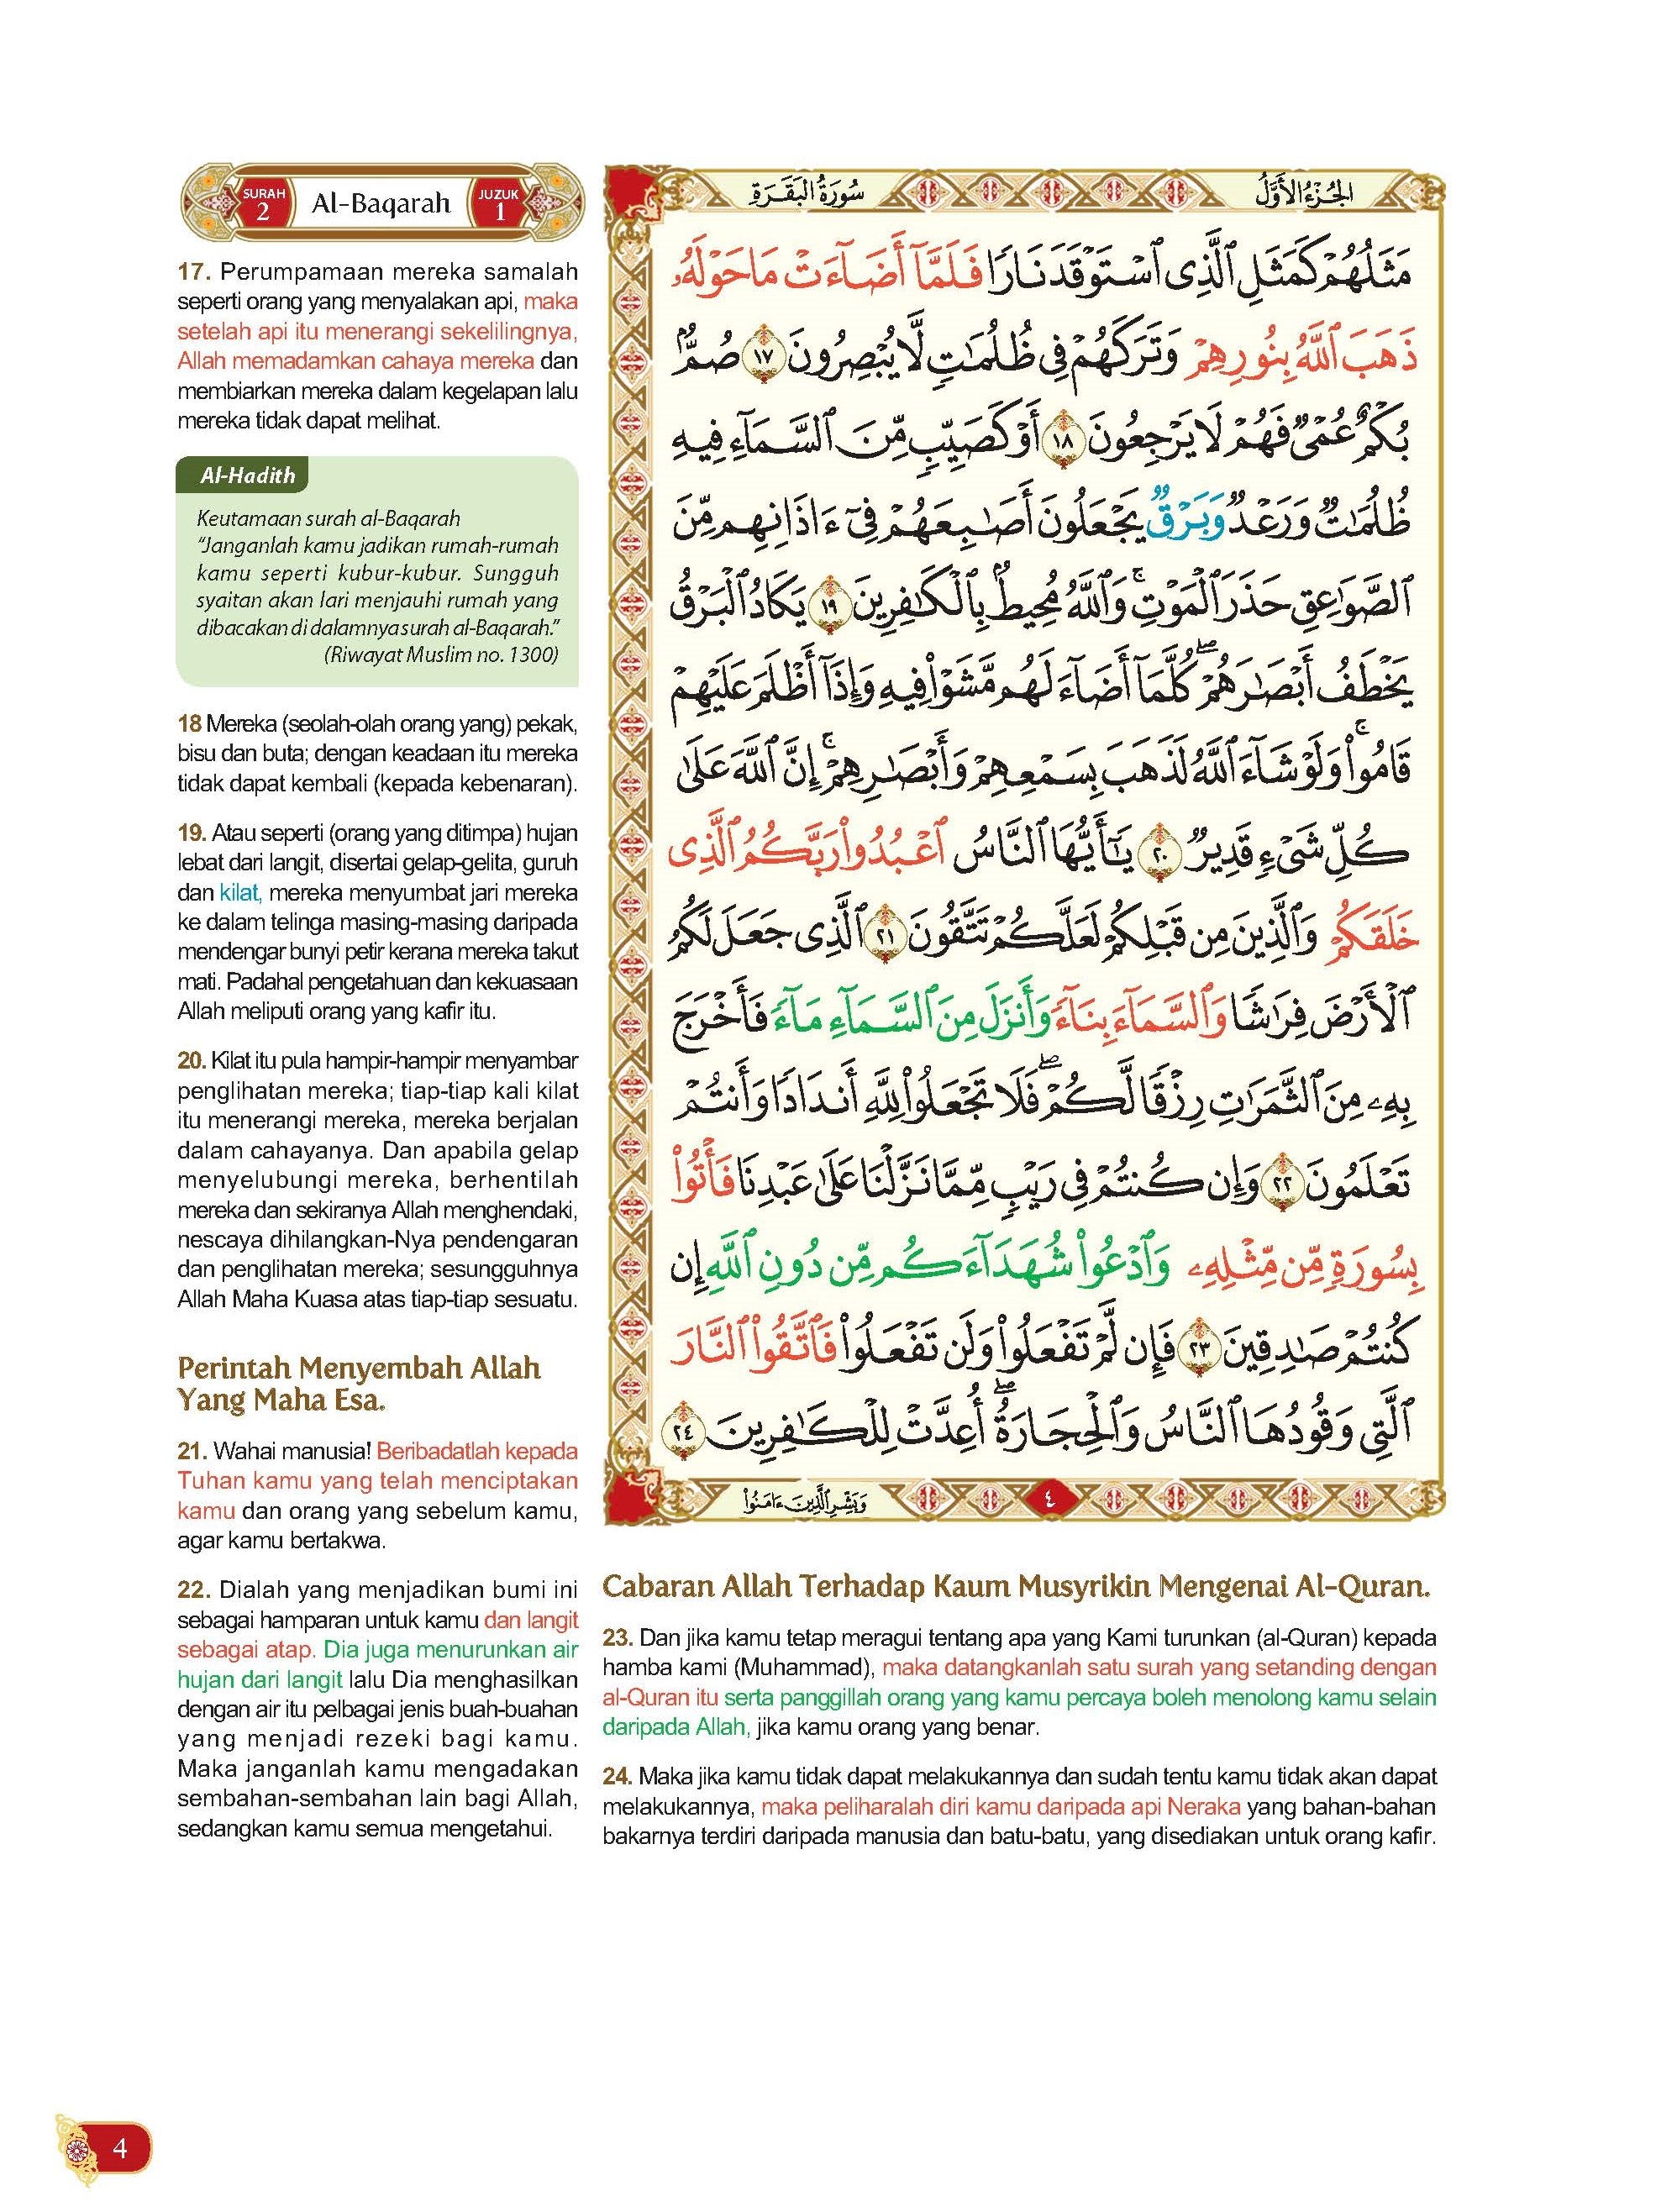 SURAH
2
Al-Baqarah
JUZUK
1
17. Perumpamaan mereka samalah
seperti orang yang menyalakan api, maka
setelah api itu menerangi sekelilingnya,
Allah memadamkan cahaya mereka dan
membiarkan mereka dalam kegelapan lalu
mereka tidak dapat melihat.
Al-Hadith
Keutamaan surah al-Baqarah
“Janganlah kamu jadikan rumah-rumah
kamu seperti kubur-kubur. Sungguh
syaitan akan lari menjauhi rumah yang
dibacakan di dalamnya surah al-Baqarah.”
(Riwayat Muslim no. 1300)
18 Mereka (seolah-olah orang yang) pekak,
bisu dan buta; dengan keadaan itu mereka
tidak dapat kembali (kepada kebenaran).
19. Atau seperti (orang yang ditimpa) hujan
lebat dari langit, disertai gelap-gelita, guruh
dan kilat, mereka menyumbat jari mereka
ke dalam telinga masing-masing daripada
mendengar bunyi petir kerana mereka takut
mati. Padahal pengetahuan dan kekuasaan
Allah meliputi orang yang kafir itu.
20. Kilat itu pula hampir-hampir menyambar
penglihatan mereka; tiap-tiap kali kilat
itu menerangi mereka, mereka berjalan
dalam cahayanya. Dan apabila gelap
menyelubungi mereka, berhentilah
mereka dan sekiranya Allah menghendaki,
nescaya dihilangkan-Nya pendengaran
dan penglihatan mereka; sesungguhnya
Allah Maha Kuasa atas tiap-tiap sesuatu.
Perintah Menyembah Allah
Yang Maha Esa.
21. Wahai manusia! Beribadatlah kepada
Tuhan kamu yang telah menciptakan
kamu dan orang yang sebelum kamu,
agar kamu bertakwa.
22. Dialah yang menjadikan bumi ini
sebagai hamparan untuk kamu dan langit
sebagai atap. Dia juga menurunkan air
hujan dari langit lalu Dia menghasilkan
dengan air itu pelbagai jenis buah-buahan
yang menjadi rezeki bagi kamu.
Maka janganlah kamu mengadakan
sembahan-sembahan lain bagi Allah,
sedangkan kamu semua mengetahui.
الجُزْءُ الأَوَّلُ
سُورَةُ البَقَرَةِ
مَثَلُهُمْ كَمَثَلِ ٱلَّذِى ٱسْتَوْقَدَ نَارًا فَلَمَّآ أَضَآءَتْ مَا حَوْلَهُۥ
ذَهَبَ ٱللَّهُ بِنُورِهِمْ وَتَرَكَهُمْ فِى ظُلُمَـٰتٍ لَّا يُبْصِرُونَ ١٧ صُمٌّۢ
بُكْمٌ عُمْىٌ فَهُمْ لَا يَرْجِعُونَ ١٨ أَوْ كَصَيِّبٍ مِّنَ ٱلسَّمَآءِ فِيهِ
ظُلُمَـٰتٌ وَرَعْدٌ وَبَرْقٌ يَجْعَلُونَ أَصَـٰبِعَهُمْ فِىٓ ءَاذَانِهِم مِّنَ
ٱلصَّوَٰعِقِ حَذَرَ ٱلْمَوْتِ ۚ وَٱللَّهُ مُحِيطٌۢ بِٱلْكَـٰفِرِينَ ١٩ يَكَادُ ٱلْبَرْقُ
يَخْطَفُ أَبْصَـٰرَهُمْ ۖ كُلَّمَآ أَضَآءَ لَهُم مَّشَوْا۟ فِيهِ وَإِذَآ أَظْلَمَ عَلَيْهِمْ
قَامُوا۟ ۚ وَلَوْ شَآءَ ٱللَّهُ لَذَهَبَ بِسَمْعِهِمْ وَأَبْصَـٰرِهِمْ ۚ إِنَّ ٱللَّهَ عَلَىٰ
كُلِّ شَىْءٍ قَدِيرٌ ٢٠ يَـٰٓأَيُّهَا ٱلنَّاسُ ٱعْبُدُوا۟ رَبَّكُمُ ٱلَّذِى
خَلَقَكُمْ وَٱلَّذِينَ مِن قَبْلِكُمْ لَعَلَّكُمْ تَتَّقُونَ ٢١ ٱلَّذِى جَعَلَ لَكُمُ
ٱلْأَرْضَ فِرَٰشًا وَٱلسَّمَآءَ بِنَآءً وَأَنزَلَ مِنَ ٱلسَّمَآءِ مَآءً فَأَخْرَجَ
بِهِۦ مِنَ ٱلثَّمَرَٰتِ رِزْقًا لَّكُمْ ۖ فَلَا تَجْعَلُوا۟ لِلَّهِ أَندَادًا وَأَنتُمْ
تَعْلَمُونَ ٢٢ وَإِن كُنتُمْ فِى رَيْبٍ مِّمَّا نَزَّلْنَا عَلَىٰ عَبْدِنَا فَأْتُوا۟
بِسُورَةٍ مِّن مِّثْلِهِۦ وَٱدْعُوا۟ شُهَدَآءَكُم مِّن دُونِ ٱللَّهِ إِن
كُنتُمْ صَـٰدِقِينَ ٢٣ فَإِن لَّمْ تَفْعَلُوا۟ وَلَن تَفْعَلُوا۟ فَٱتَّقُوا۟ ٱلنَّارَ
ٱلَّتِى وَقُودُهَا ٱلنَّاسُ وَٱلْحِجَارَةُ ۖ أُعِدَّتْ لِلْكَـٰفِرِينَ ٢٤
٤
وَبَشِّرِ ٱلَّذِينَ ءَامَنُوا۟
Cabaran Allah Terhadap Kaum Musyrikin Mengenai Al-Quran.
23. Dan jika kamu tetap meragui tentang apa yang Kami turunkan (al-Quran) kepada
hamba kami (Muhammad), maka datangkanlah satu surah yang setanding dengan
al-Quran itu serta panggillah orang yang kamu percaya boleh menolong kamu selain
daripada Allah, jika kamu orang yang benar.
24. Maka jika kamu tidak dapat melakukannya dan sudah tentu kamu tidak akan dapat
melakukannya, maka peliharalah diri kamu daripada api Neraka yang bahan-bahan
bakarnya terdiri daripada manusia dan batu-batu, yang disediakan untuk orang kafir.
4